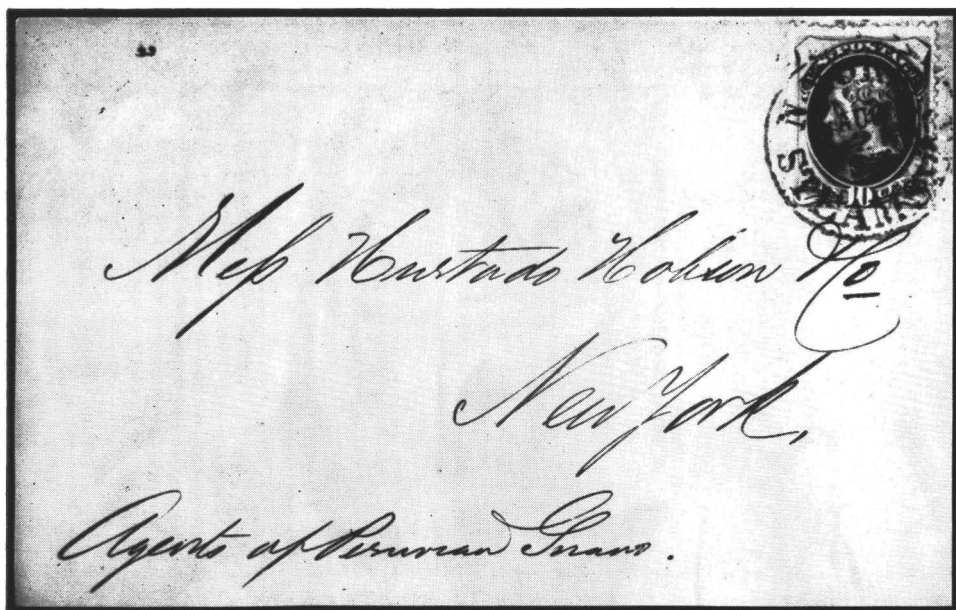 10
Mess Hurtado Hobson & Co
New York,
Agents of Peruvian Guano.